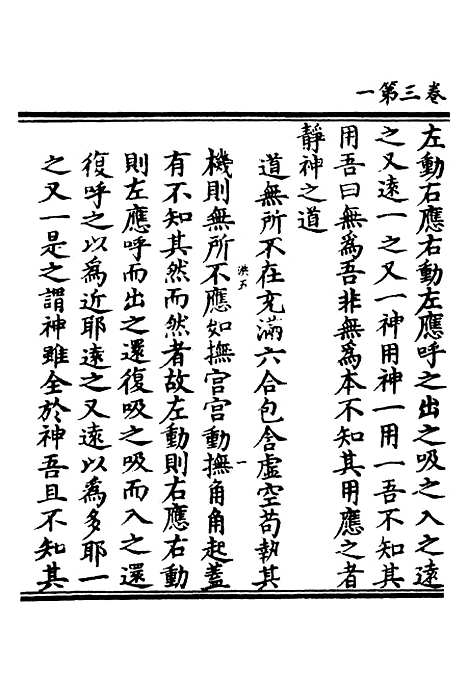 卷三第一
左動右應右動左應呼之出之吸之入之遠
之又遠一之又一神用神一用一吾不知其
用吾曰無為吾非無為本不知其用應之者
靜神之道
道無所不在充滿六合包含虛空苟執其
洪五
一
機則無所不應如撫宮宮動撫角角起蓋
有不知其然而然者故左動則右應右動
則左應呼而出之還復吸之吸而入之還
復呼之以為近耶遠之又遠以為多耶一
之又一是之謂神雖全於神吾且不知其